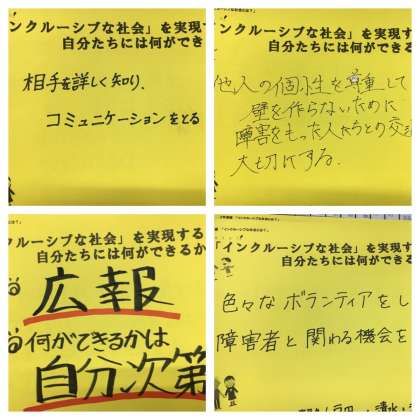 ンクルーシブな社会」を実現す
自分たちには何ができ
相手を詳しく知り、
コミュニケーションをとる
ンクルーシブな社会」を実現す
自分たちには何ができ
他人の個性を尊重して
壁を作らないために
障害をもった人たちとの交
大切にする.
クルーシブな社会」を実現する
自分たちには何ができるか
広報
何ができるかは
自分次第
「インクルーシブな社会」を実現す
自分たちには何ができる
色々なボランティアをし
障害者と関わる機会を